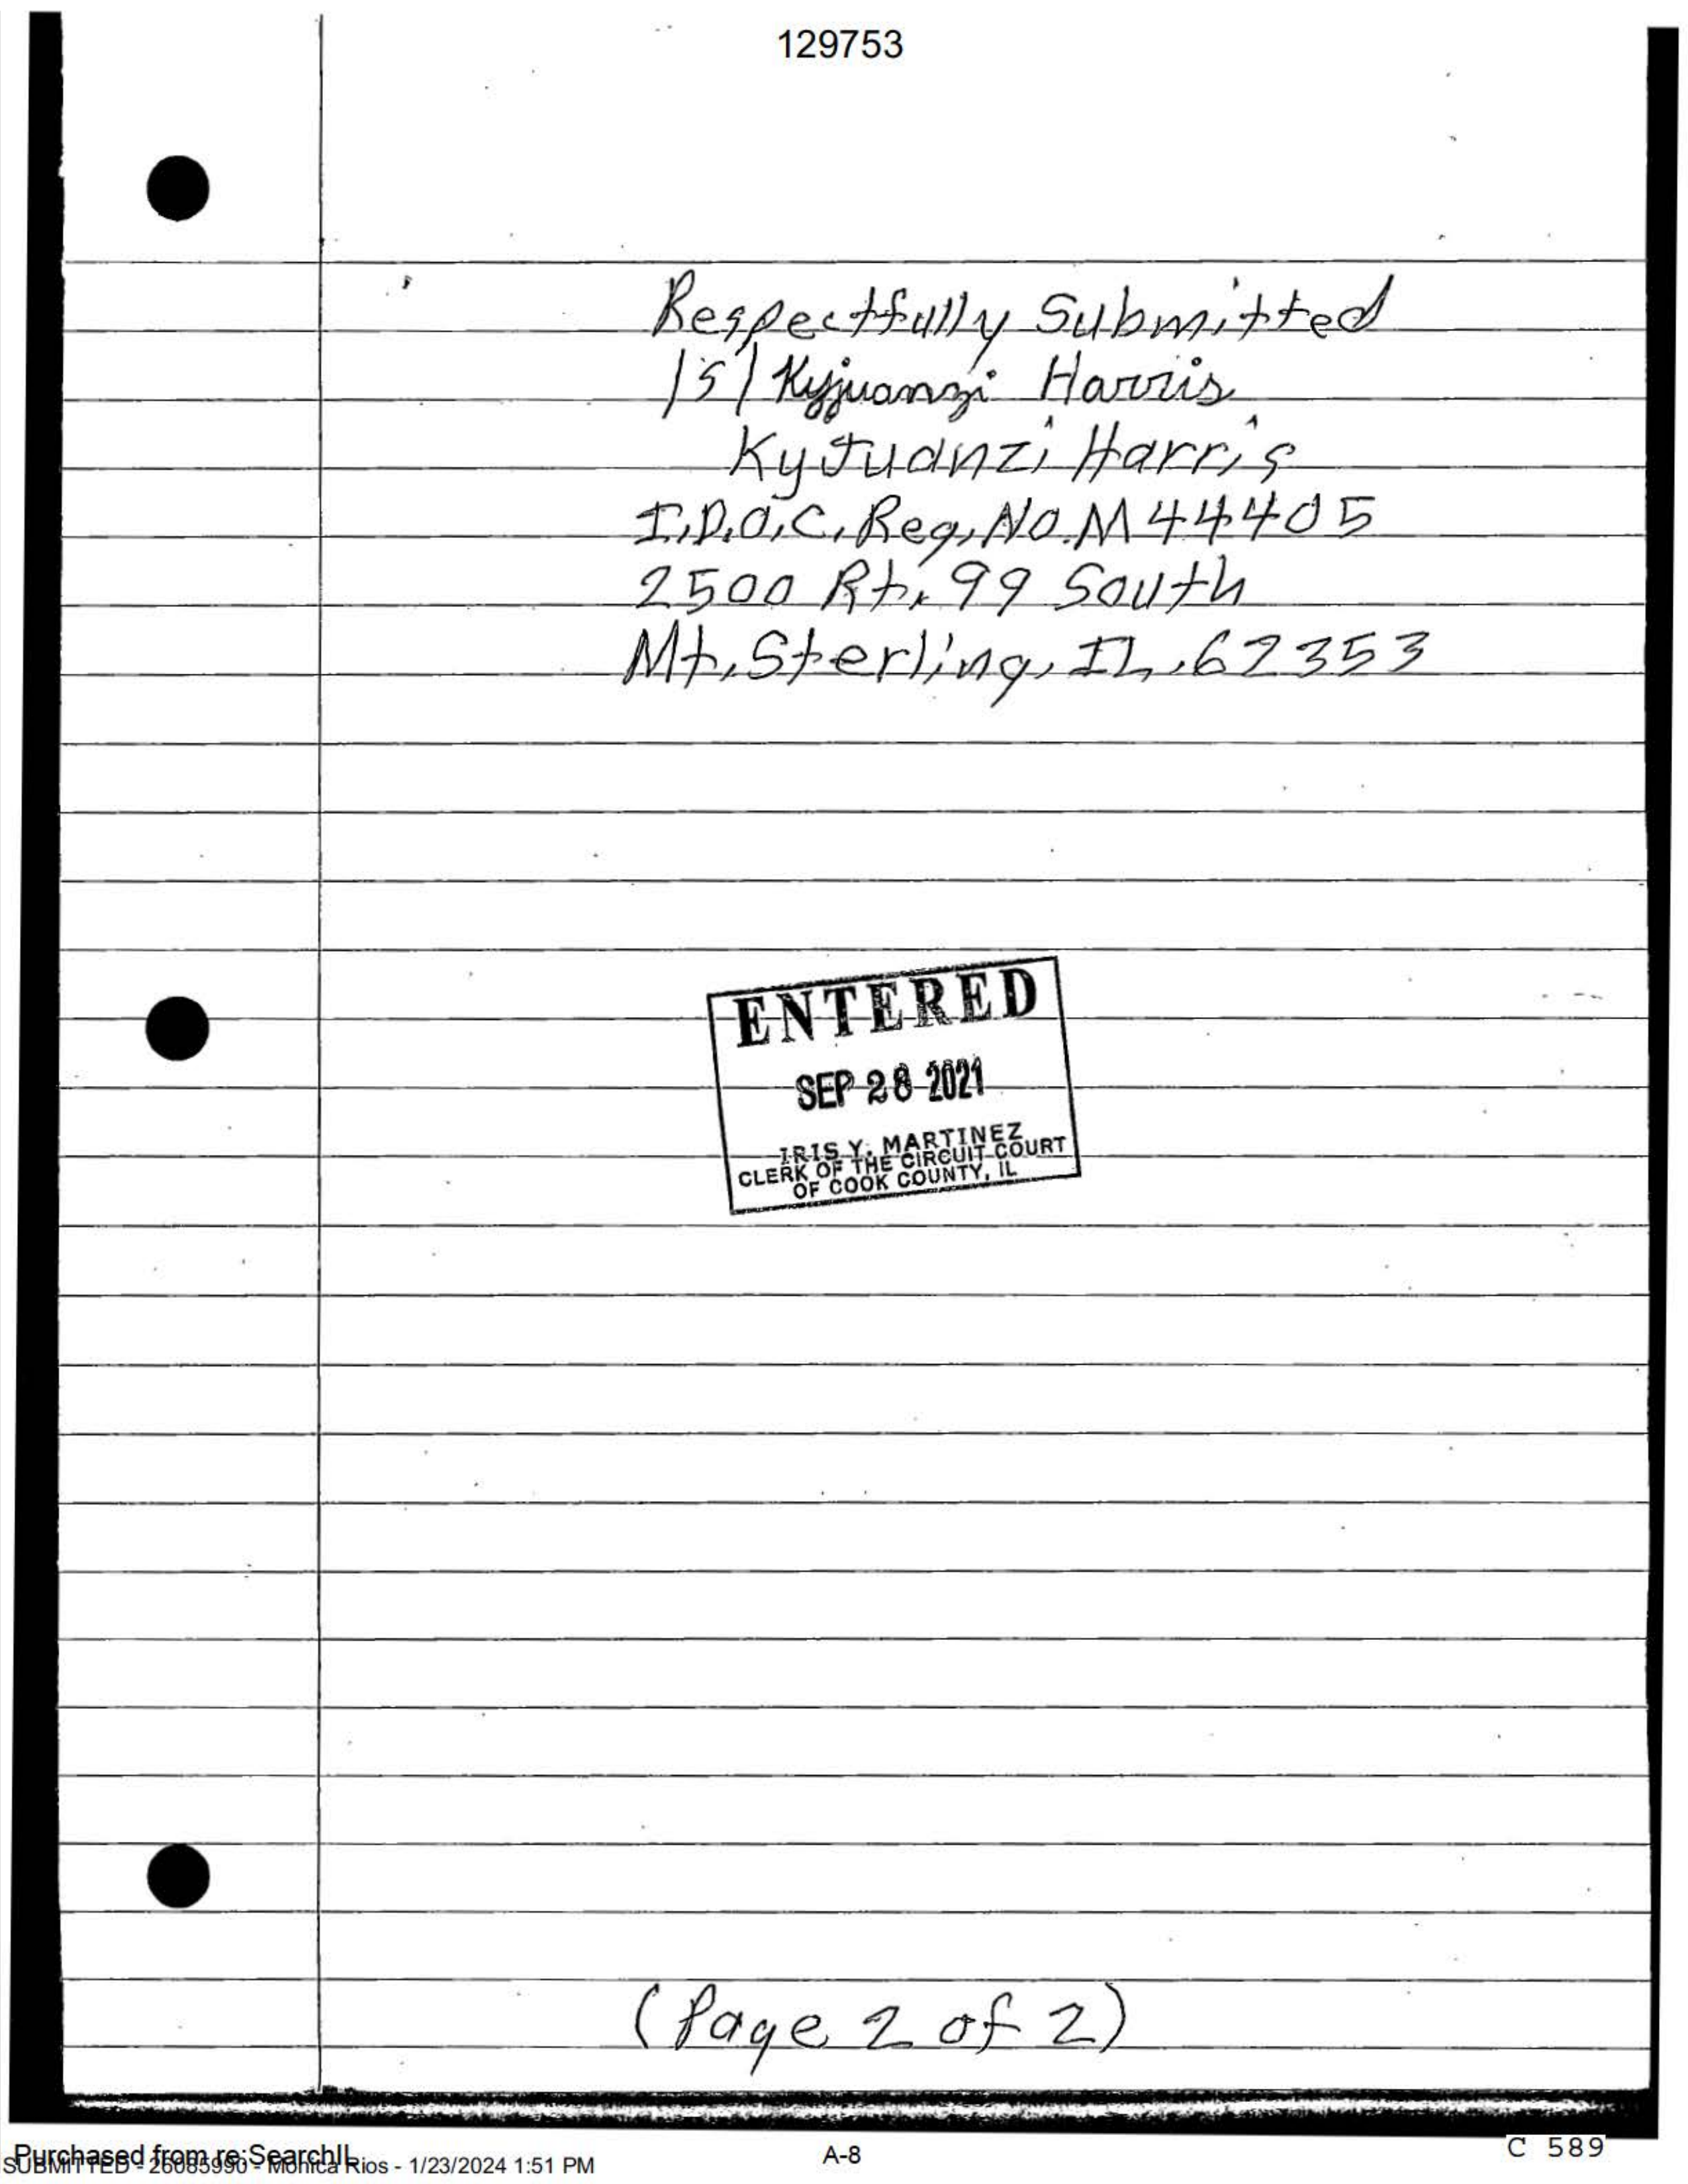 129753
Respectfully Submitted
/s/ Kyjuanzi Harris
KyJuanzi Harris
I.D.O.C. Reg. No. M44405
2500 Rt. 99 South
Mt. Sterling, IL. 62353
ENTERED
SEP 28 2021
IRIS Y. MARTINEZ
CLERK OF THE CIRCUIT COURT
OF COOK COUNTY, IL
(Page 2 of 2)
Purchased from re:SearchIL
SUBMITTED - 26085990 - Monica Rios - 1/23/2024 1:51 PM
A-8
C 589